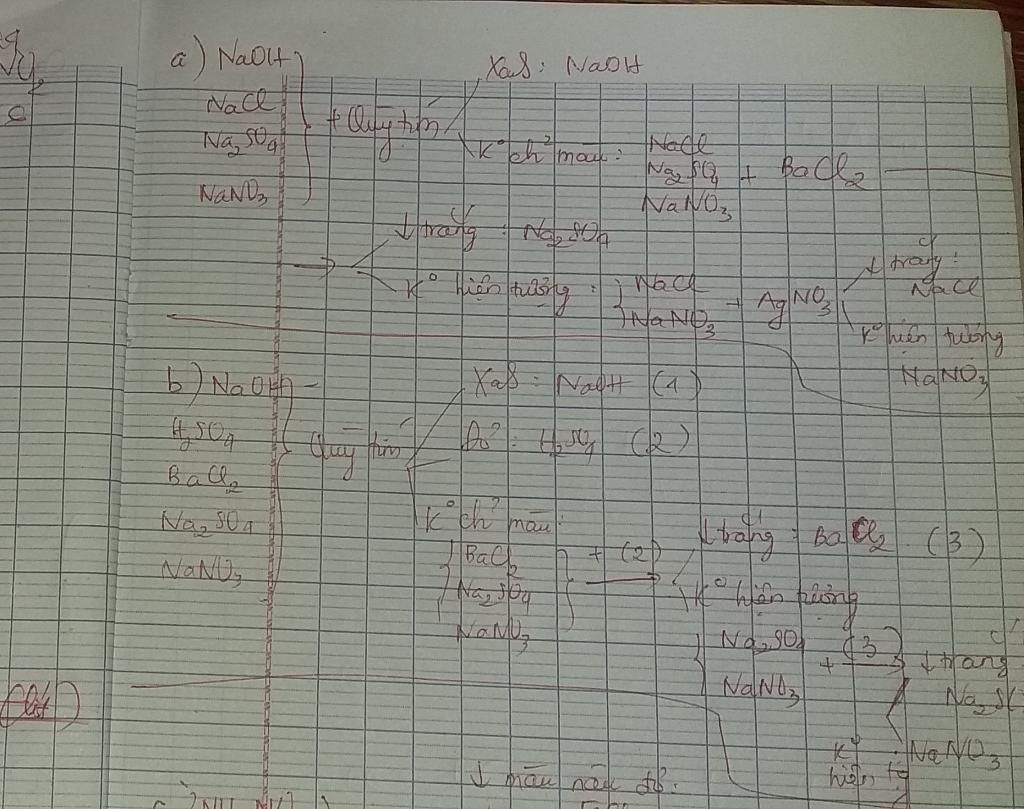 a) NaOH
NaCl
Na2SO4
NaNO3
+ Quỳ tím
Xanh: NaOH
K° chº màu:
NaCl
Na2SO4
NaNO3
+ BaCl2
↓ trắng: Na2SO4
K° hiện tượng:
NaCl
NaNO3
+ AgNO3
↓ trắng:
NaCl
K° hiện tượng
NaNO3
b) NaOH
H2SO4
BaCl2
Na2SO4
NaNO3
Quỳ tím
Xanh: NaOH (1)
Đỏ: H2SO4 (2)
K° chº màu:
BaCl2
Na2SO4
NaNO3
+ (2)
↓ trắng: BaCl2 (3)
K° hiện tượng
Na2SO4
NaNO3
+ (3)
↓ trắng
Na2S
K°
hiện tg
: NaNO3
↓ màu nâu đỏ: